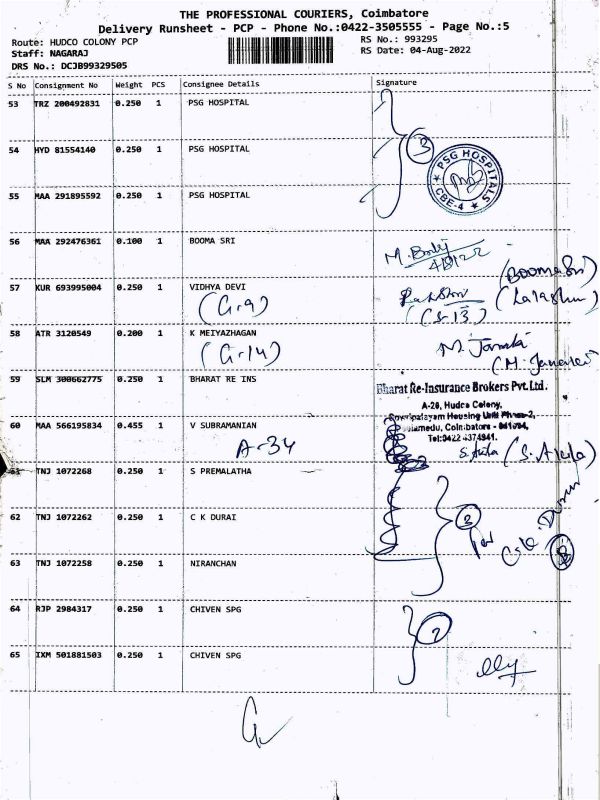 THE PROFESSIONAL COURIERS, Coimbatore
Delivery Runsheet - PCP - Phone No.:0422-3505555 - Page No.:5
Route: HUDCO COLONY PCP
RS No.: 993295
Staff: NAGARAJ
RS Date: 04-Aug-2022
DRS No.: DCJB99329505
S No Consignment No Weight PCS Consignee Details Signature
53 TRZ 200492831 0.250 1 PSG HOSPITAL
3
54 HYD 81554140 0.250 1 PSG HOSPITAL
PSG HOSPITALS
CBE-4
55 MAA 291895592 0.250 1 PSG HOSPITAL
56 MAA 292476361 0.100 1 BOOMA SRI
4/8/22
(Booma Sri)
57 KUR 693995004 0.250 1 VIDHYA DEVI
(G-9)
58 ATR 3120549 0.200 1 K MEIYAZHAGAN
(G-14)
59 SLM 300662775 0.250 1 BHARAT RE INS
Bharat Re-Insurance Brokers Pvt. Ltd.
A-20, Hudco Colony,
Housing Unit
Coimbatore
60 MAA 566195834 0.455 1 V SUBRAMANIAN
A-34
(S. Akila)
61 TNJ 1072268 0.250 1 S PREMALATHA
62 TNJ 1072262 0.250 1 C K DURAI
3
63 TNJ 1072258 0.250 1 NIRANCHAN
64 RJP 2984317 0.250 1 CHIVEN SPG
2
65 IXM 501881503 0.250 1 CHIVEN SPG